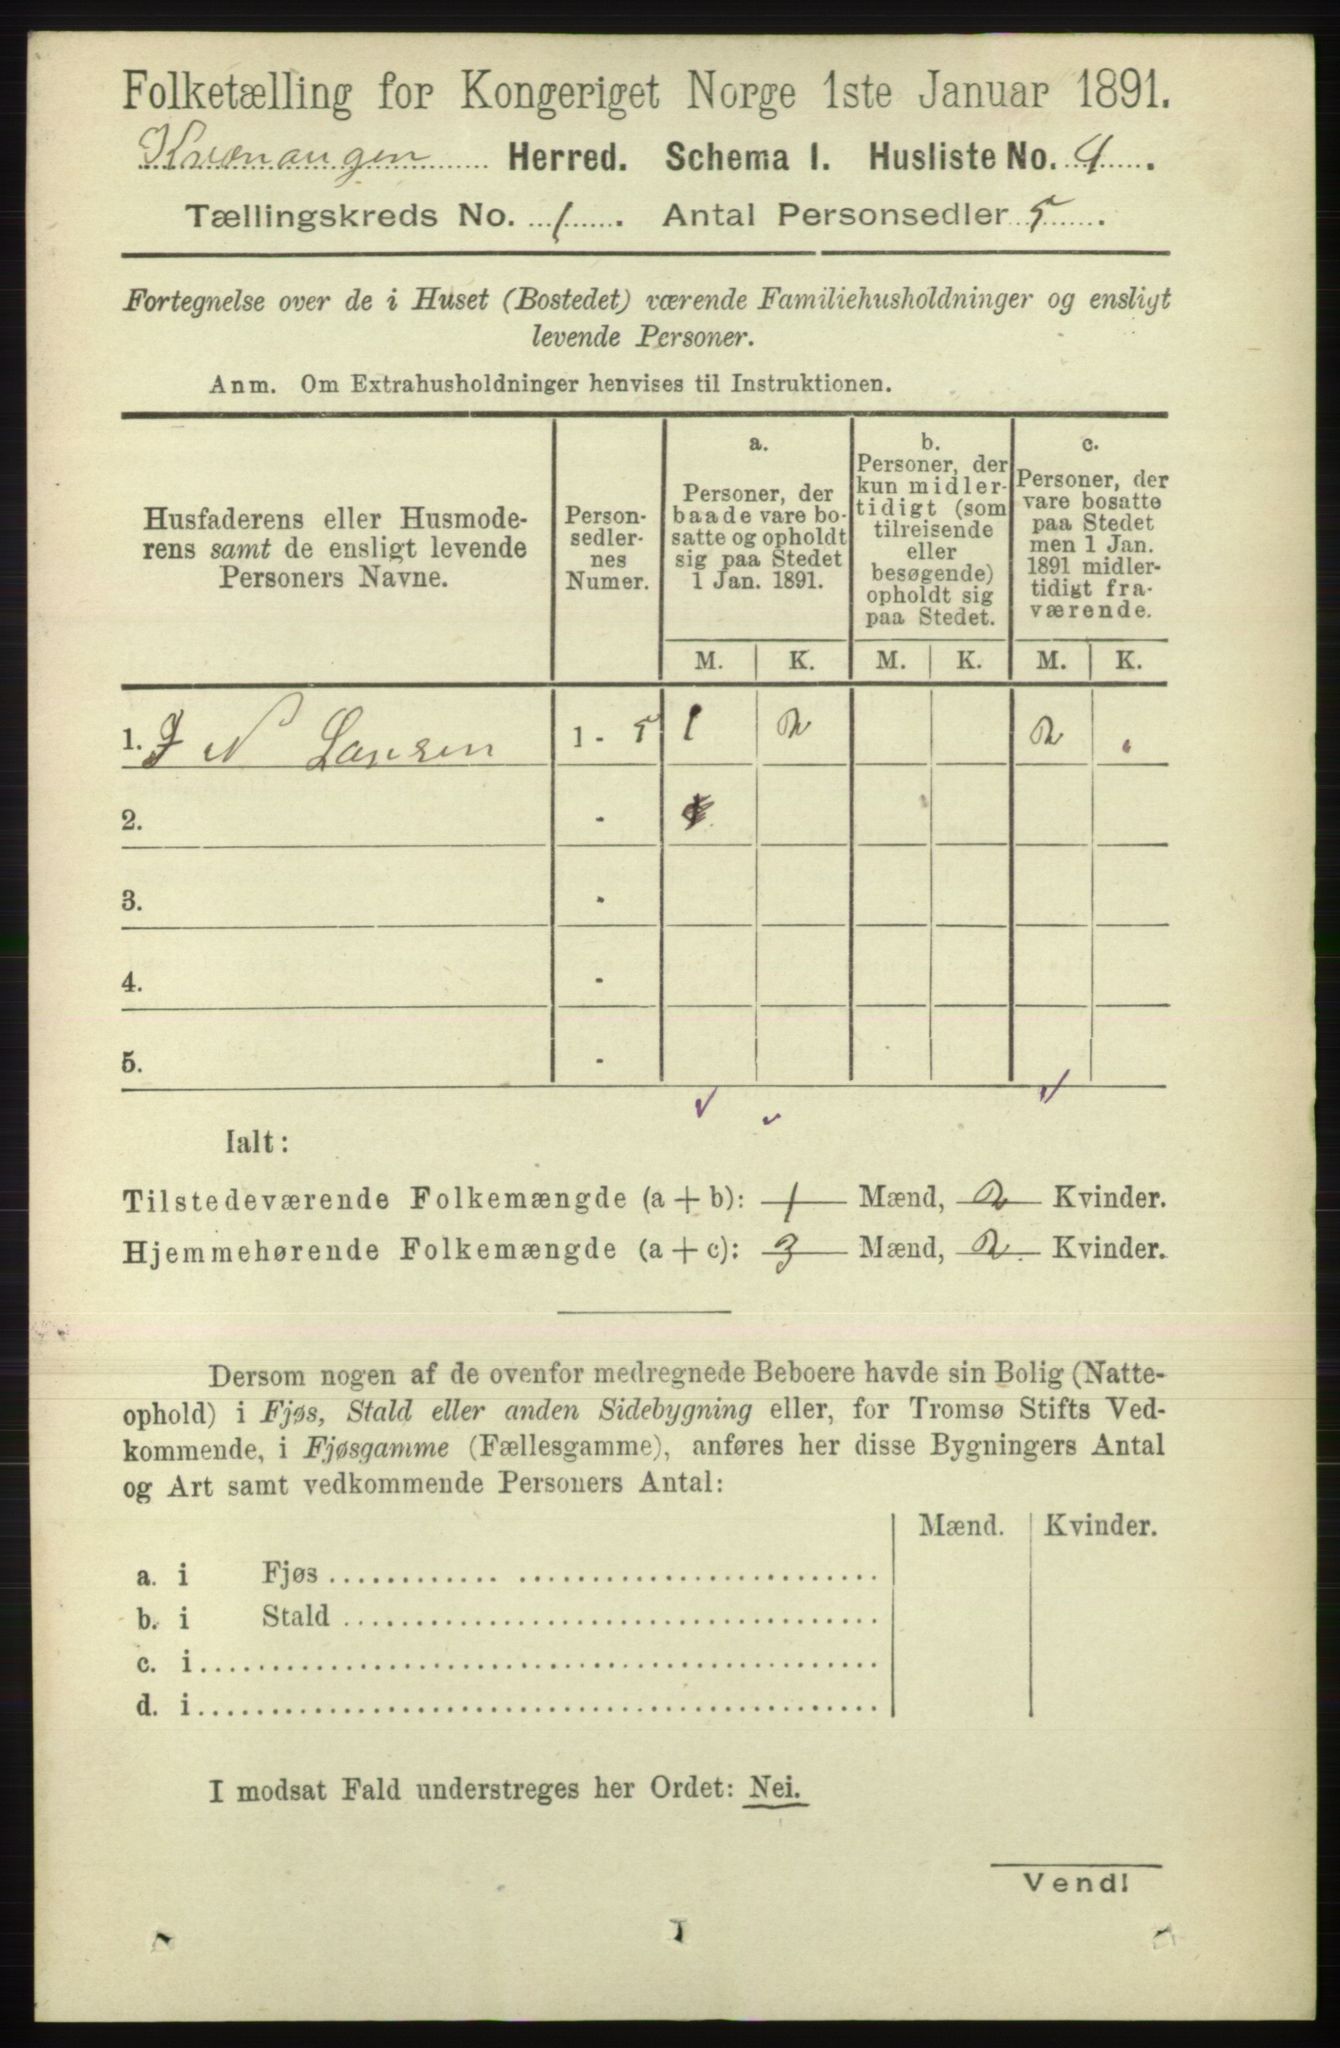 Folketælling for Kongeriget Norge 1ste Januar 1891.
Kvænangen Herred. Schema I. Husliste No. 4.
Tællingskreds No. 1. Antal Personsedler 5.
Fortegnelse over de i Huset (Bostedet) værende Familiehusholdninger og ensligt
levende Personer.
Anm. Om Extrahusholdninger henvises til Instruktionen.
Husfaderens eller Husmode-
rens samt de ensligt levende
Personers Navne.
Person-
sedler-
nes
Numer.
a.
Personer, der
baade vare bo-
satte og opholdt
sig paa Stedet
1 Jan. 1891.
b.
Personer, der
kun midler-
tidigt (som
tilreisende
eller
besøgende)
opholdt sig
paa Stedet.
c.
Personer, der
vare bosatte
paa Stedet
men 1 Jan.
1891 midler-
tidigt fra-
værende.
M. K. M. K. M. K.
1. J N Larsen 1 - 5 1 2 2
2. -
3. -
4. -
5. -
Ialt:
Tilstedeværende Folkemængde (a + b): 1 Mænd, 2 Kvinder.
Hjemmehørende Folkemængde (a + c): 3 Mænd, 2 Kvinder.
Dersom nogen af de ovenfor medregnede Beboere havde sin Bolig (Natte-
ophold) i Fjøs, Stald eller anden Sidebygning eller, for Tromsø Stifts Ved-
kommende, i Fjøsgamme (Fællesgamme), anføres her disse Bygningers Antal
og Art samt vedkommende Personers Antal:
Mænd. Kvinder.
a. i Fjøs
b. i Stald
c. i
d. i
I modsat Fald understreges her Ordet: Nei.
Vend!